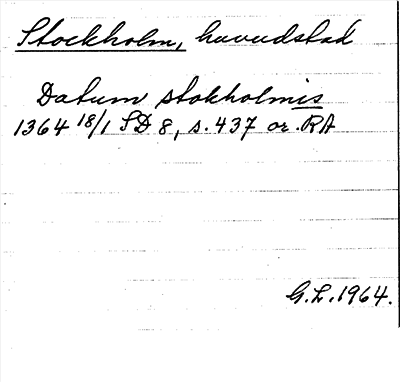 Stockholm, huvudstad
Datum stokholmis
1364 18/1 SD 8, s. 437 or. RA
G.L. 1964.